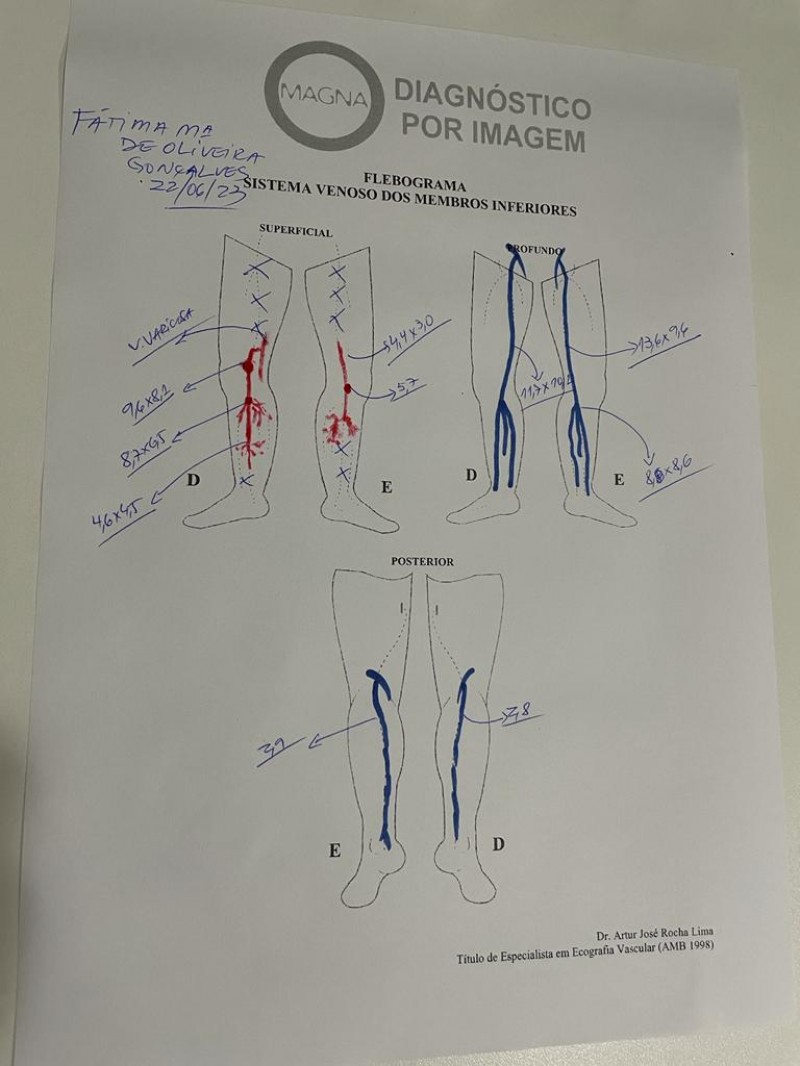 MAGNA
DIAGNÓSTICO
POR IMAGEM
FÁTIMA Mª
DE OLIVEIRA
GONÇALVES
22/06/23
FLEBOGRAMA
SISTEMA VENOSO DOS MEMBROS INFERIORES
SUPERFICIAL
PROFUNDO
V. VARICOSA
4,4x3,0
13,6x9,4
9,6x8,1
5,7
8,7x6,5
D
E
D
E
4,6x4,5
POSTERIOR
E
D
Dr. Artur José Rocha Lima
Título de Especialista em Ecografia Vascular (AMB 1998)